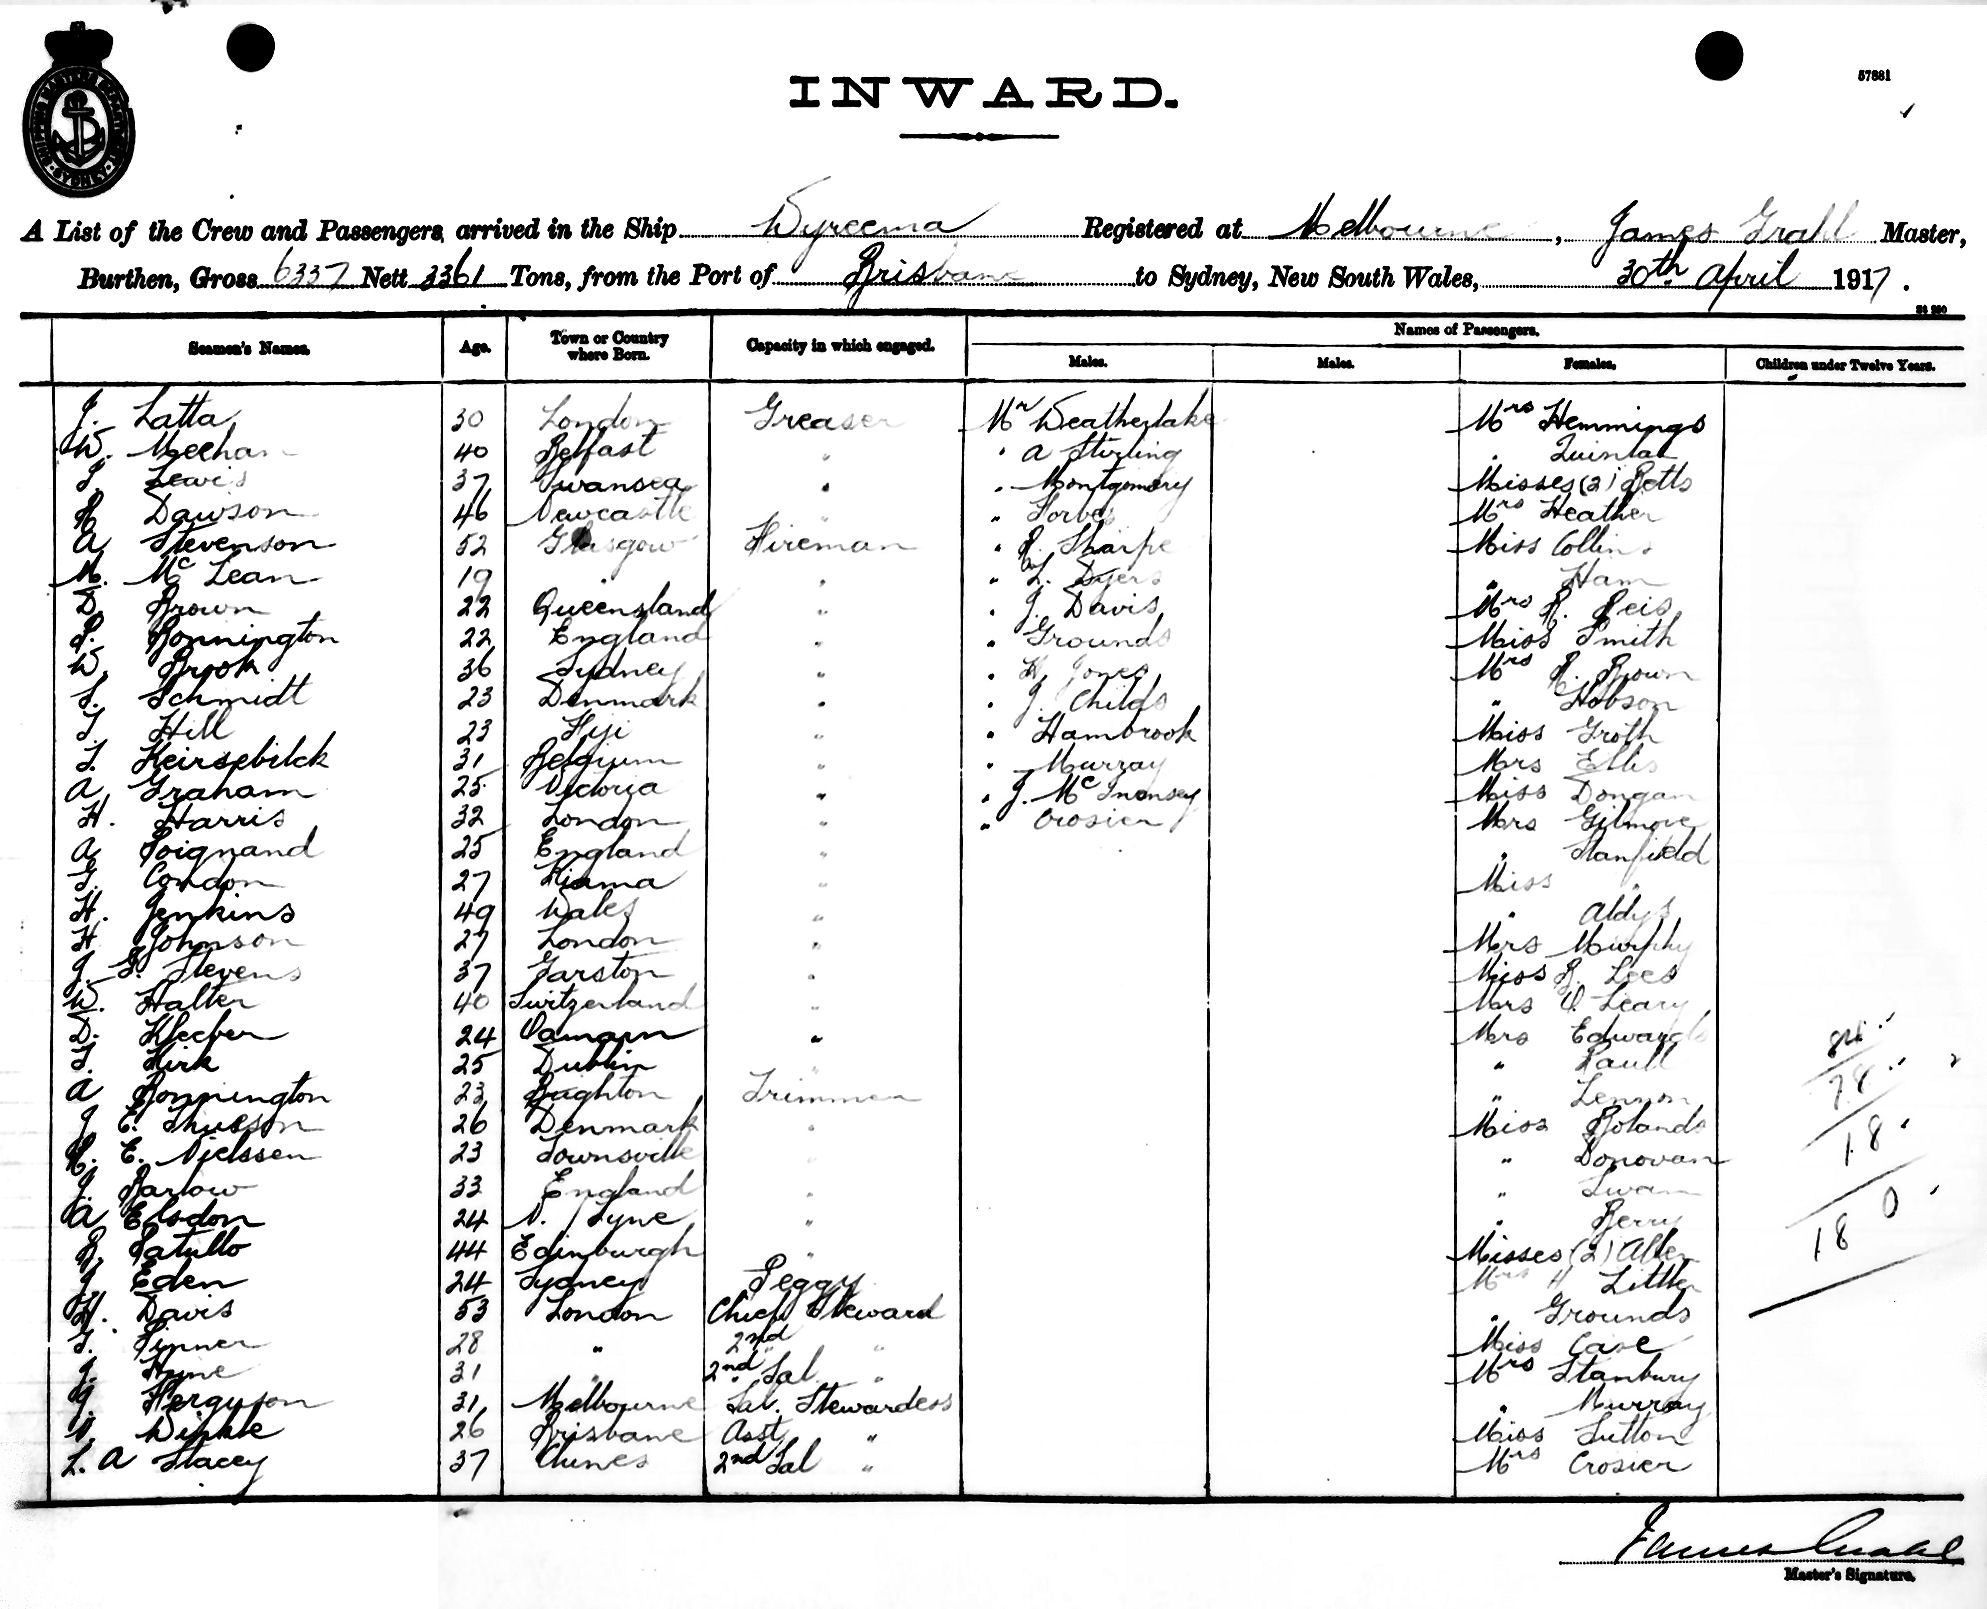 SHIPPING MASTERS DEPARTMENT SYDNEY
57881
INWARD.
A List of the Crew and Passengers arrived in the Ship Wyreema Registered at Melbourne, James Grahl Master,
Burthen, Gross 6337 Nett 3361 Tons, from the Port of Brisbane to Sydney, New South Wales, 30th April 1917.
Seamen's Names. Age. Town or Country where Born. Capacity in which engaged. Names of Passengers.
Males. Males. Females. Children under Twelve Years.
J. Latta 30 London Greaser Mr Weatherlake Mrs Hemmings
W. Meehan 40 Belfast " " A Stirling " Quinlan
J. Lewis 37 Swansea " " Montgomery Misses (2) Betts
R Dawson 46 Newcastle " " Forbes Mrs Heather
A Stevenson 52 Glasgow Fireman " R. Sharpe Miss Collins
M. McLean 19 " " " L. Dyers " Ham
D. Brown 22 Queensland " " J. Davis Mrs R. Reis
P. Bonnington 22 England " " Grounds Miss Smith
W. Brook 36 Sydney " " H. Jones Mrs R. Brown
S. Schmidt 23 Denmark " " J. Childs " Hobson
T. Hill 23 Fiji " " Hambrook Miss Groth
T. Keirsebilck 31 Belgium " " Murray Mrs Ellis
A Graham 25 Victoria " " J. McInnnsey Miss Dongan
H. Harris 32 London " " Crosier Mrs Gilmore
A Poignand 25 England " " Stanfield
T. Condon 27 Kiama " Miss "
H. Jenkins 49 Wales " " Aldys
H Johnson 27 London " Mrs Murphy
J. G. Stevens 37 Garston " Miss R. Lees
W. Halter 40 Switzerland " Mrs O'Leary
D. Kleeber 24 Oamaru " Mrs Edwards 84
T. Kirk 25 Dublin " " Paull
A Bonnington 23 Brighton Trimmer " Lennon 78
J E. Thuesson 26 Denmark " Miss Rolands
R. E. Nielssen 23 Townsville " " Donovan 18
J. Barlow 33 England " " Swan
A Elsdon 24 N. / Tyne " " Berry 0
R. Patullo 44 Edinburgh " Misses (2) Allen 18
J Eden 24 Sydney Peggy Mrs H Little
H. Davis 53 London Chief Steward " Grounds
T. Pinner 28 " 2nd " " Miss Case
J. Hyne 31 " 2nd Sal " Mrs Stanbury
J. Ferguson 31 Melbourne Sal. Stewardess " Murray
N. Winkle 26 Brisbane Asst " Miss Sutton
L. A Stacey 37 Clunes 2nd Sal " Mrs Crosier
James Grahl
Master's Signature.